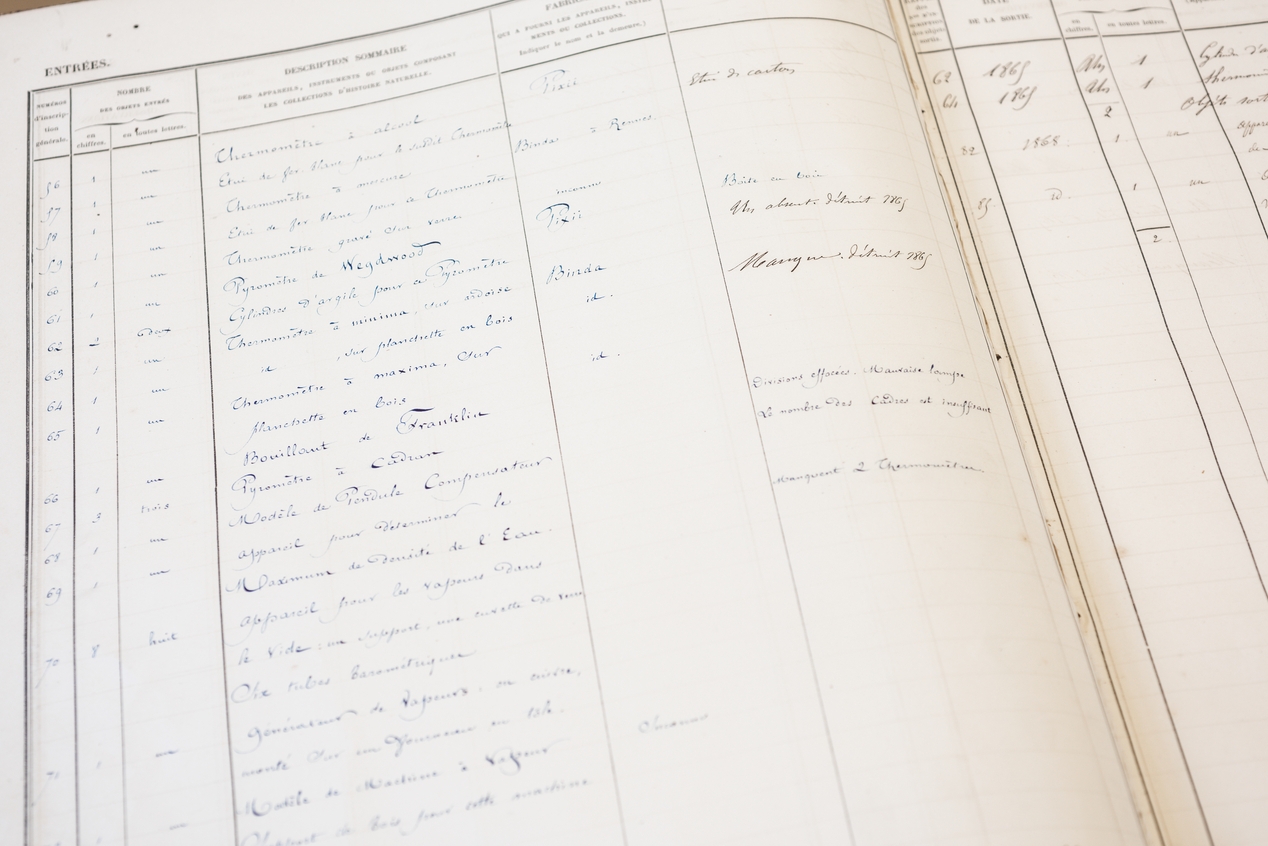 ENTRÉES.
NUMÉROS
d'inscrip-
tion
générale.
NOMBRE
DES OBJETS ENTRÉS
en
chiffres.
en toutes lettres.
DESCRIPTION SOMMAIRE
DES APPAREILS, INSTRUMENTS OU OBJETS COMPOSANT
LES COLLECTIONS D'HISTOIRE NATURELLE.
QUI A FOURNI LES APPAREILS, INSTRU-
MENTS OU COLLECTIONS.
(Indiquer le nom et la demeure.)
DATE
DE LA SORTIE.
en
chiffres.
en toutes lettres.
56 1 un Thermomètre à alcool Pixii Etui de carton
57 1 un Etui de fer blanc pour le susdit Thermomètre
58 1 un Thermomètre à mercure Binda à Rennes.
59 1 un Etui de fer blanc pour ce Thermomètre
60 1 un Thermomètre gravé sur verre inconnu Boite en bois
61 1 un Pyromètre de Wegdwood Pixii Un absent détruit 1865
62 2 deux Cylindres d'argile pour ce Pyromètre
63 1 un Thermomètre à minima, sur ardoise Binda Manque. détruit 1865
64 1 un id , sur planchette en bois id.
65 1 un Thermomètre à maxima, sur
planchette en bois id.
66 1 un Bouillant de Franklin
67 3 trois Pyromètre à Cadran Divisions effacées. Mauvaise lampe
68 1 un Modèle de Pendule Compensateur Le nombre des Cadres est insuffisant
69 1 un appareil pour déterminer le
Maximum de densité de l'Eau. Manquent 2 Thermomètres
70 8 huit appareil pour les vapeurs dans
le vide: un support, une cuvette de verre
tubes barométriques
71 1 un Générateur de vapeurs: en cuivre,
monté sur un fourneau en tôle.
1 un Modèle de Machine à Vapeur Inconnu
Support de bois pour cette machine
62 1865 Un 1
64 1865 Un 1
2
82 1868 1 un
85 id. 1 un
2